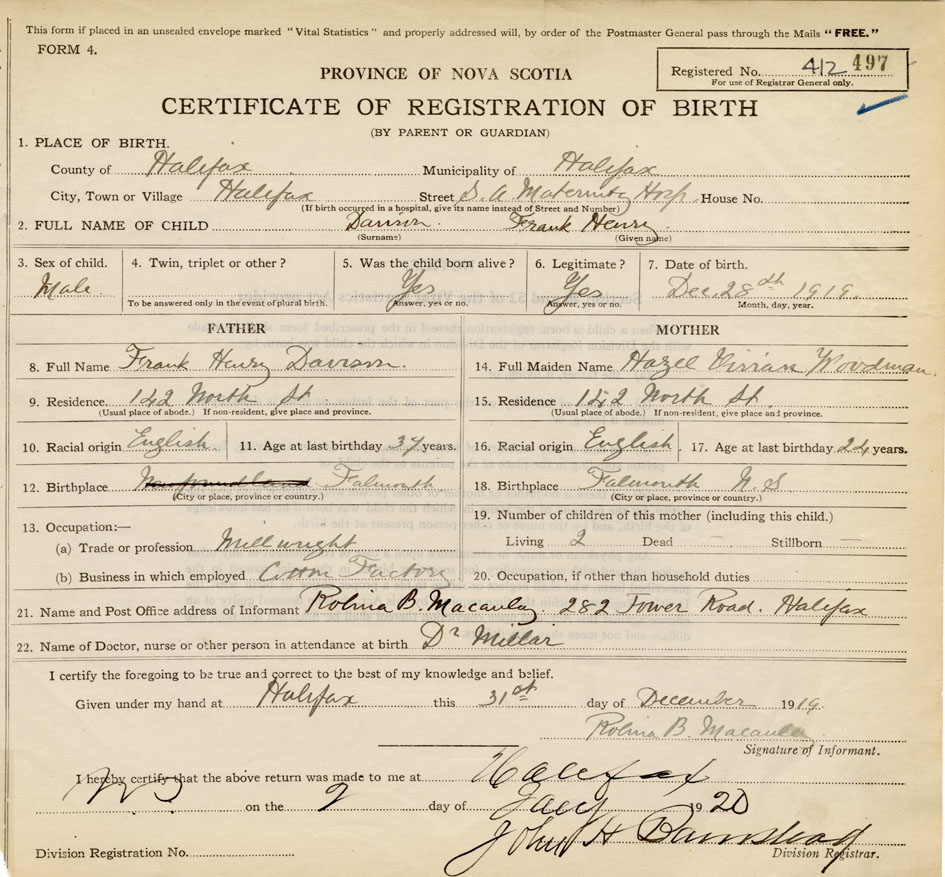 This form if placed in an unsealed envelope marked "Vital Statistics" and properly addressed will, by order of the Postmaster General pass through the Mails "FREE."
FORM 4.
PROVINCE OF NOVA SCOTIA
Registered No. 412 497
For use of Registrar General only.
CERTIFICATE OF REGISTRATION OF BIRTH
(BY PARENT OR GUARDIAN)
1. PLACE OF BIRTH.
County of Halifax Municipality of Halifax
City, Town or Village Halifax Street S. A Maternity Hosp. House No.
(If birth occurred in a hospital, give its name instead of Street and Number)
2. FULL NAME OF CHILD Davison. Frank Henry.
(Surname) (Given name)
3. Sex of child. 4. Twin, triplet or other? 5. Was the child born alive? 6. Legitimate? 7. Date of birth.
Male. Yes Yes Dec. 28th 1919.
To be answered only in the event of plural birth. Answer, yes or no. Answer, yes or no. Month, day, year.
FATHER MOTHER
8. Full Name Frank Henry Davison. 14. Full Maiden Name Hazel Vivian Woodman.
9. Residence. 142 North St 15. Residence 142 North St.
(Usual place of abode.) If non-resident, give place and province. (Usual place of abode.) If non-resident, give place and province.
10. Racial origin English. 11. Age at last birthday 37 years. 16. Racial origin English. 17. Age at last birthday 24 years.
12. Birthplace Newfoundland Falmouth 18. Birthplace Falmouth N. S
(City or place, province or country.) (City or place, province or country.)
13. Occupation:— 19. Number of children of this mother (including this child.)
(a) Trade or profession Millwright Living 2 Dead – Stillborn —
(b) Business in which employed Cotton Factory 20. Occupation, if other than household duties
21. Name and Post Office address of Informant Rolina B. Macaulay. 282 Tower Road. Halifax
22. Name of Doctor, nurse or other person in attendance at birth Dr Millar
I certify the foregoing to be true and correct to the best of my knowledge and belief.
Given under my hand at Halifax this 31st day of December 1919.
Rolina B. Macaulay
Signature of Informant.
I hereby certify that the above return was made to me at Halifax
on the 2 day of Jany 1920
John H Barnstead
Division Registration No. Division Registrar.